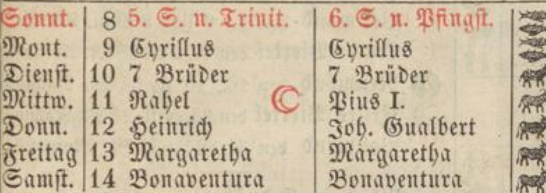 Sonnt. 8 5. S. n. Trinit. 6. S. n. Pfingst.
Mont. 9 Cyrillus Cyrillus
Dienst. 10 7 Brüder 7 Brüder
Mittw. 11 Rahel Pius I.
Donn. 12 Heinrich Joh. Gualbert
Freitag 13 Margaretha Margaretha
Samst. 14 Bonaventura Bonaventura